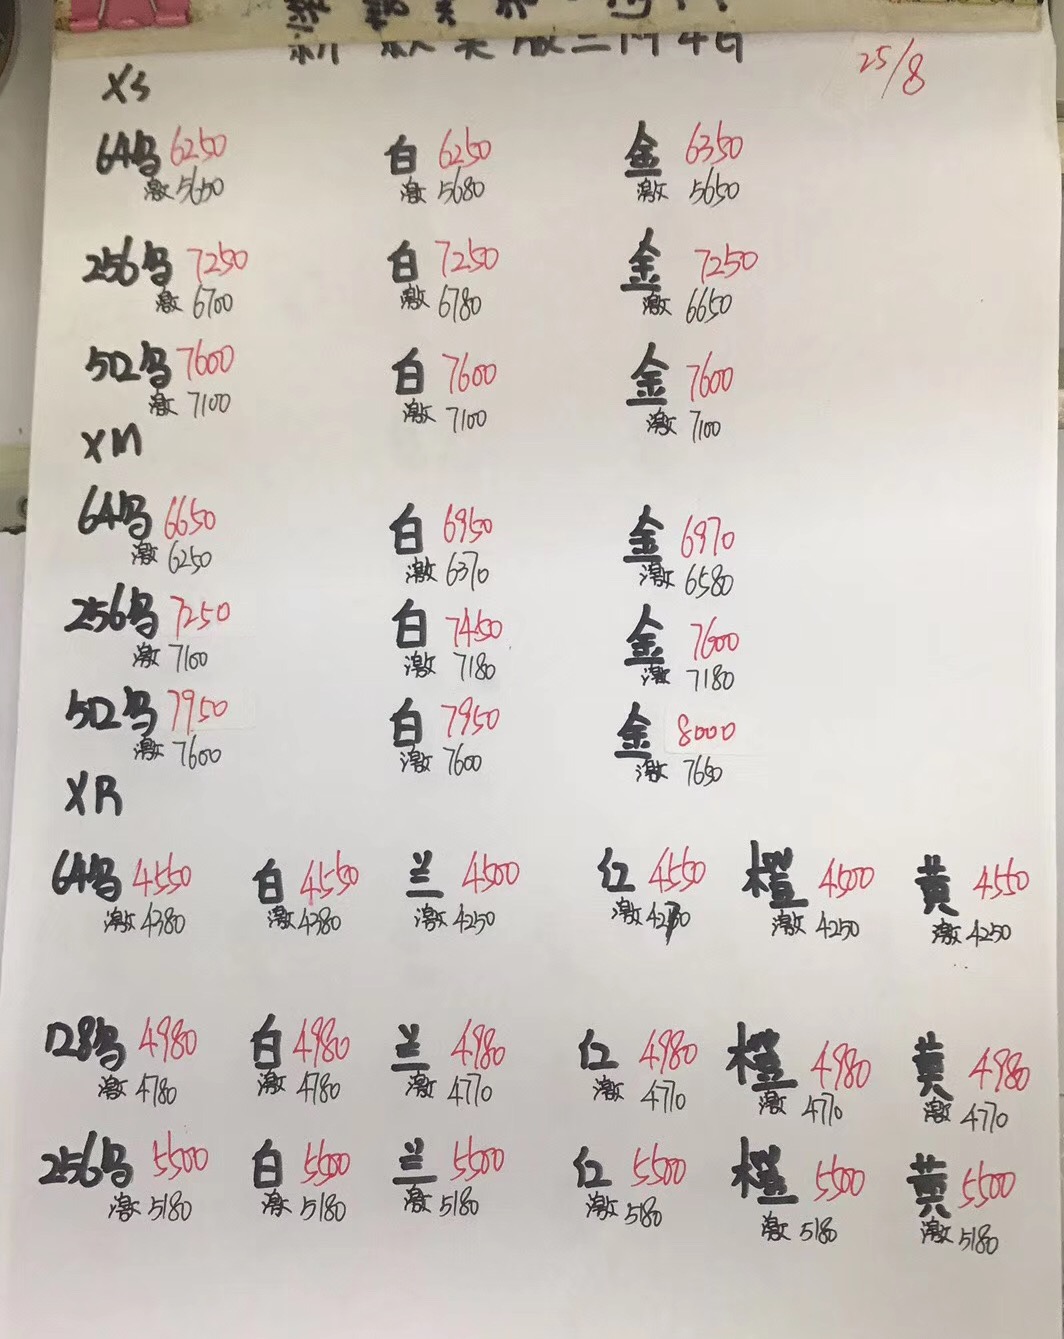 25/8
XS
64乌 6250 白 6250 金 6350
激 5650 激 5680 激 5650
256乌 7250 白 7250 金 7250
激 6700 激 6780 激 6650
512乌 7600 白 7600 金 7600
激 7100 激 7100 激 7100
XM
64乌 6650 白 6950 金 6970
激 6250 激 6370 激 6580
256乌 7250 白 7450 金 7600
激 7100 激 7180 激 7180
512乌 7950 白 7950 金 8000
激 7600 激 7600 激 7650
XR
64乌 4550 白 4550 兰 4500 红 4550 橙 4500 黄 4550
激 4380 激 4380 激 4250 激 激 4250 激 4250
128乌 4980 白 4980 兰 4980 红 4980 橙 4980 黄 4980
激 4780 激 4780 激 4770 激 4770 激 4770 激 4770
256乌 5500 白 5500 兰 5500 红 5500 橙 5500 黄 5500
激 5180 激 5180 激 5180 激 5180 激 5180 激 5180